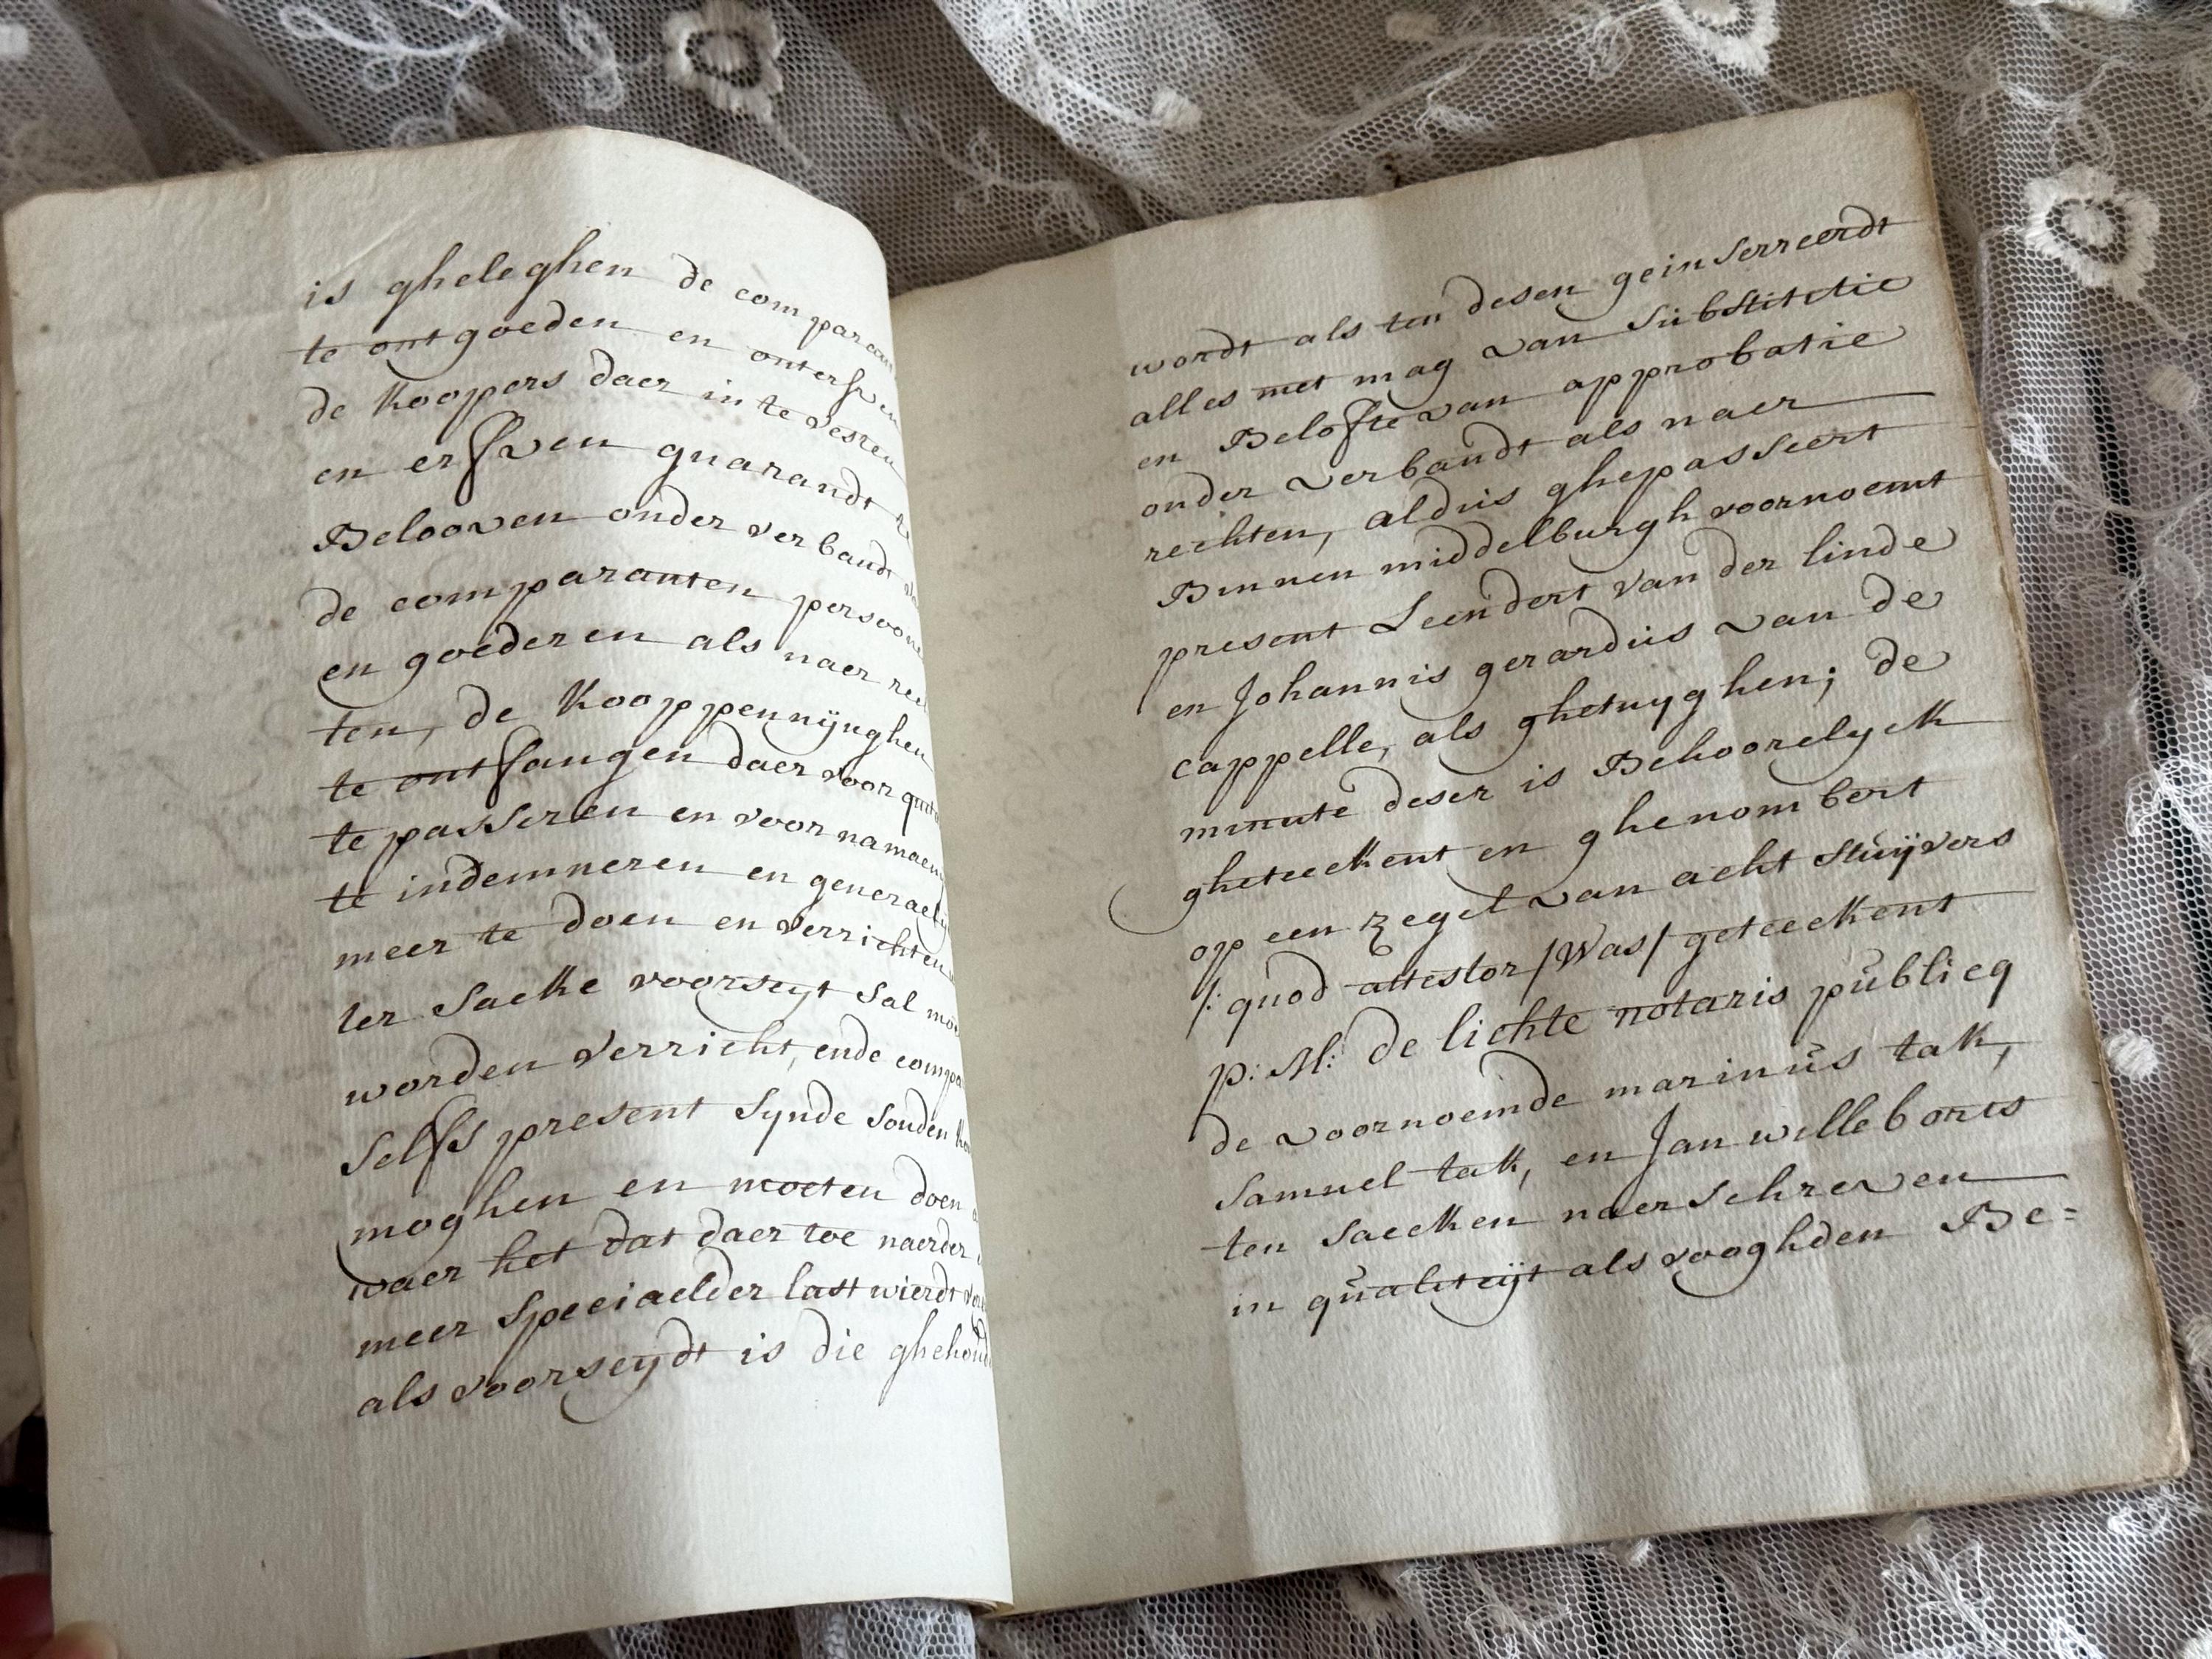 is gheleghen de comparan
te ontgoeden en onterfven
de Koopers daer in te vesten
en erfven guarandt
Belooven onder verbandt
de comparanten persoone
en goederen als naer rech
ten, de Kooppennijnghen
te ontfangen daer voor quit
te passeren en voor namaen
te indemneren en generaely
meer te doen en verrichten
ter Saeke voorseyt Sal mo
worden verricht, ende compa
Selfs present Synde Souden
moghen en moeten doen
waer het dat daer toe naerder
meer Speciaelder last wierdt
als voorseydt is die ghehoud
wordt als ten desen geinserreerdt
alles met mag van Substitutie
en Belofte van approbatie
onder verbandt als naer
rechten, aldus ghepasseert
Binnen middelburgh voornoemt
present Leendert van der linde
en Johannis gerardus van de
cappelle, als ghetuyghen; de
minute deser is Behoorelyck
gheteekent en ghenombert
op een zegel van acht Stuijvers
/: quod attestor /Was/ geteekent
p: M: de lichte notaris publicq
de voornoemde marinus tak,
Samuel tak, en Jan willeborts
ten Saecken naerschreven
in qualiteijt als vooghden Be=